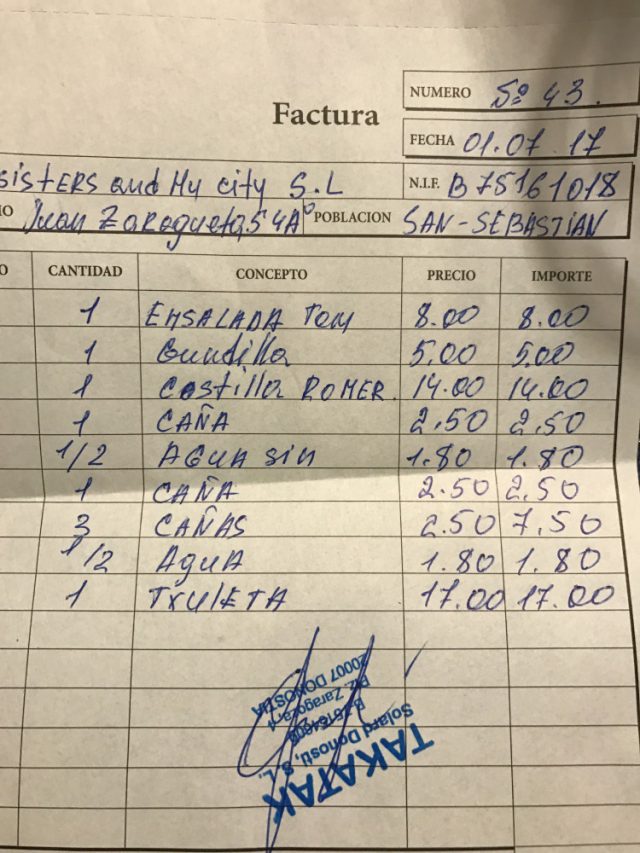 Factura
NUMERO Nº 43.
FECHA 01.07 17
sistERS and My city S.L N.I.F. B 75161018
IO Juan Zaragueta, 5 4Aº POBLACION SAN-SEBASTIAN
O CANTIDAD CONCEPTO PRECIO IMPORTE
1 ENSALADA Tom 8.00 8.00
1 Gundilla 5,00 5,00
1 Costilla ROMER. 14.00 14.00
1 CAÑA 2.50 2,50
1/2 AGUA sin 1.80 1.80
1 CAÑA 2.50 2,50
3 CAÑAS 2.50 7,50
1/2 AguA 1.80 1.80
1 TXUlETA 17.00 17.00
TAKATAK
Solard Donosti, S. L.
Plz. Zaragoza, 4
20007 DONOSTIA